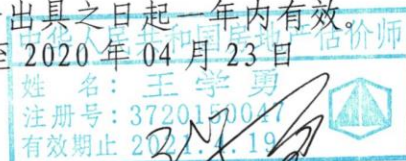 出具之日起一年内有效。
至 2020 年 04 月 23 日
中华人民共和国房地产估价师
姓 名：王学勇
注册号：3720150047
有效期止 2021.4.19